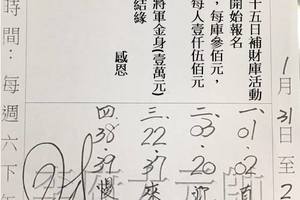 1月31日至2
十五日補財庫活動
開始報名
，每庫參佰元，
每人壹仟伍佰元
將軍金身(壹萬元)
結緣
感恩
時間：每週六下午
一、01、02
二、03、20
三、22、37、來
四、38、39、慢